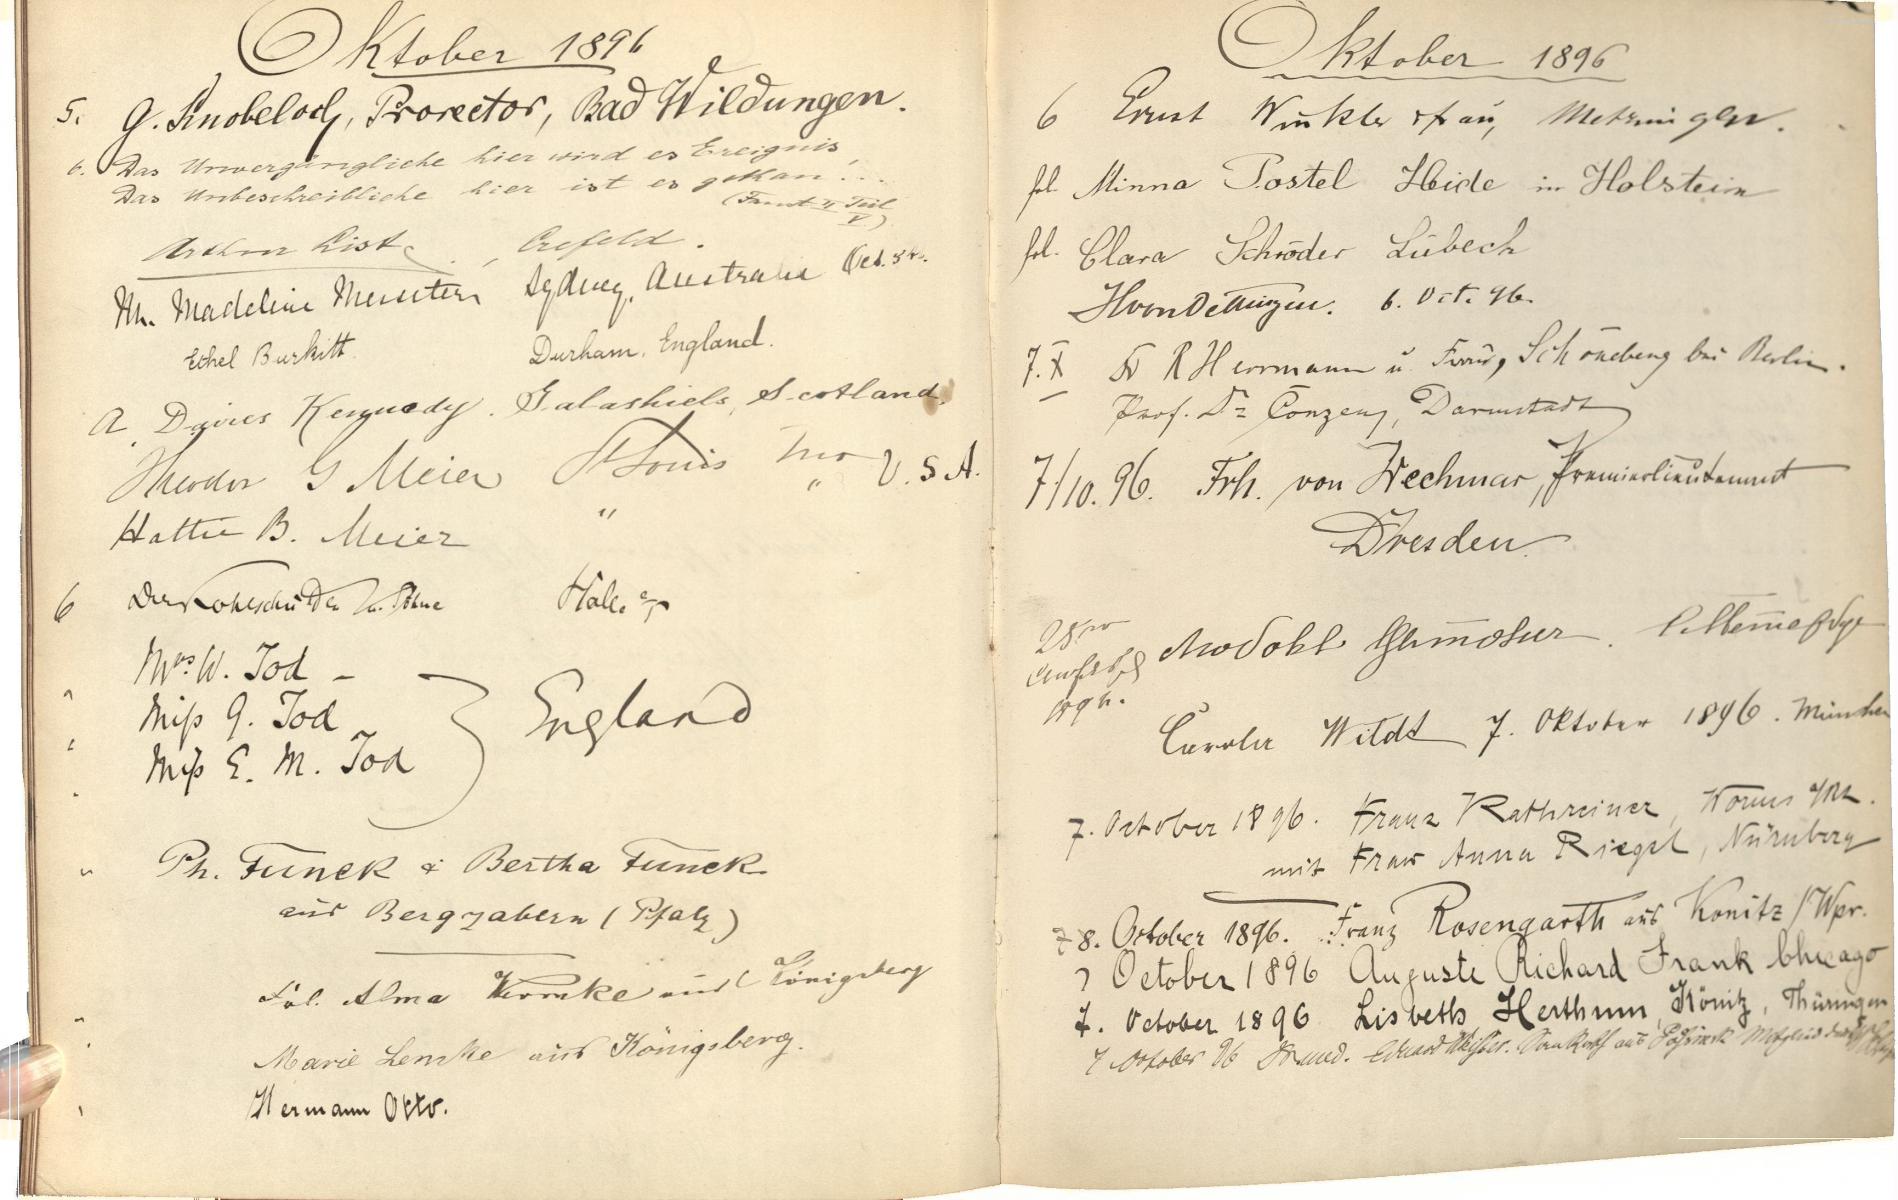 Oktober 1896
5. G. Knobeloch, Prorector, Bad Wildungen.
6. Das Unvergängliche hier wird es Ereignis,
Das Unbeschreibliche hier ist es gethan...
(Faust II Teil
V)
Arthur List, Crefeld.
Madeline Sydney, Australia Oct. 5th.
Ethel Burkitt Durham, England.
A. Davies Kennedy. Galashiels, Scotland.
Theodor G Meier St Louis Mo U.S.A.
Hattie B. Meier " "
6 Halle a/
Mrs. W. Tod
Miss G. Tod
Miss E. M. Tod
England
Ph. Funck & Bertha Funck
aus Bergzabern (Pfalz)
Frl. Alma aus Königsberg
Marie Lemke aus Königsberg.
Hermann Otto.
Oktober 1896
6 Ernst Winkler Metzingen.
frl. Minna Postel Heide in Holstein
frl. Clara Schröder Lübeck
6. Oct. 96.
7. X Dr R Herrmann u. Frau, Schöneberg bei Berlin.
Prof. Dr. Conzen, Darmstadt
7/10. 96. Frh. von Wechmar, Premierlieutenant
Dresden
Wildt 7. Oktober 1896. München
7. October 1896. Franz Kathreiner, Worms a/Rh.
mit Frau Anna Riegel, Nürnberg
8. October 1896. Franz Rosengarth aus Konitz / Wpr.
7 October 1896 Auguste Richard Frank Chicago
7. October 1896 Lisbeth Herthum, Könitz, Thüringen
7 October 96 Dr. med. Eduard aus Pößneck Mitglied